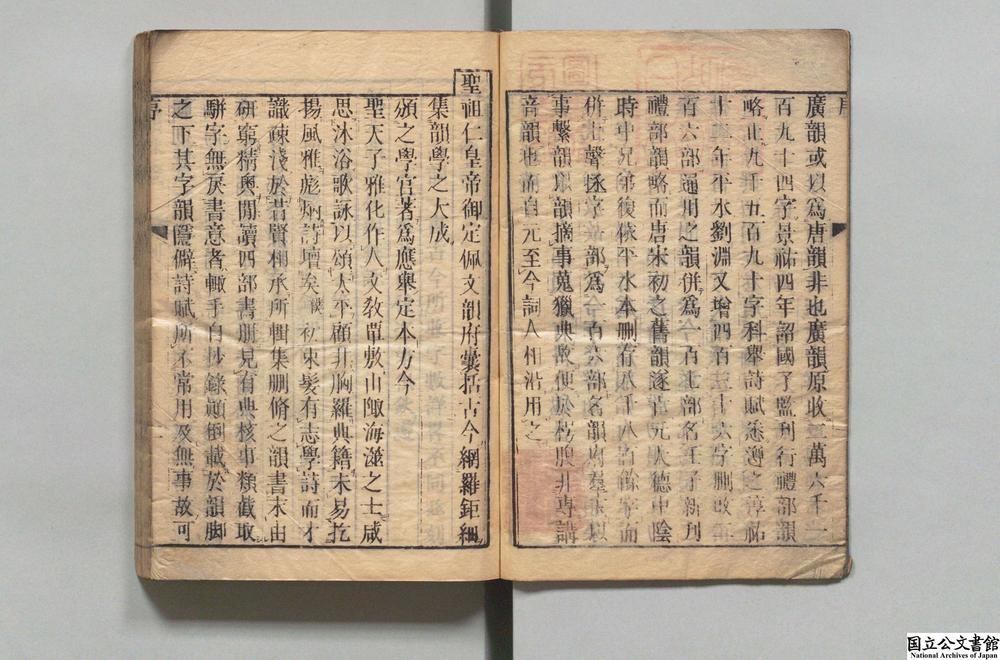 序
廣韻或以爲唐韻非也廣韻原收二萬六千一
百九十四字景祐四年詔國子監刊行禮部韻
略止九千五百九十字科舉詩賦遵之淳祐
十二年平水劉淵又增四百三十六字刪改
百六部通用之韻併爲一百七部名壬子新刊
禮部韻略而唐宋初之舊韻遂
時中兄弟復依平水本刪存八千八百餘字而
併上聲拯字部爲一百六部名韻府羣玉以
事繫韻以韻摘事蒐獵典故便於枵腹非專講
音韻也而自元至今詞人相沿用之
聖祖仁皇帝御定佩文韻府囊括古今網羅鉅細
集韻學之大成
頒之學官著爲應舉定本方今
聖天子雅化作人文敎單敷山陬海澨之士咸
思沐浴歌詠以頌太平顧非胸羅典籍未易扢
揚風雅彪炳詩壇矣候初束髮有志學詩而才
識疎淺於昔賢相承所輯集刪脩之韻書未由
硏窮精奧閒讀四部書册見有典核事類截取
駢字無戾書意者輒手自抄錄顚倒載於韻脚
之下其字韻隱僻詩賦所不常用及無事故可
序
一
国立公文書館
National Archives of Japan